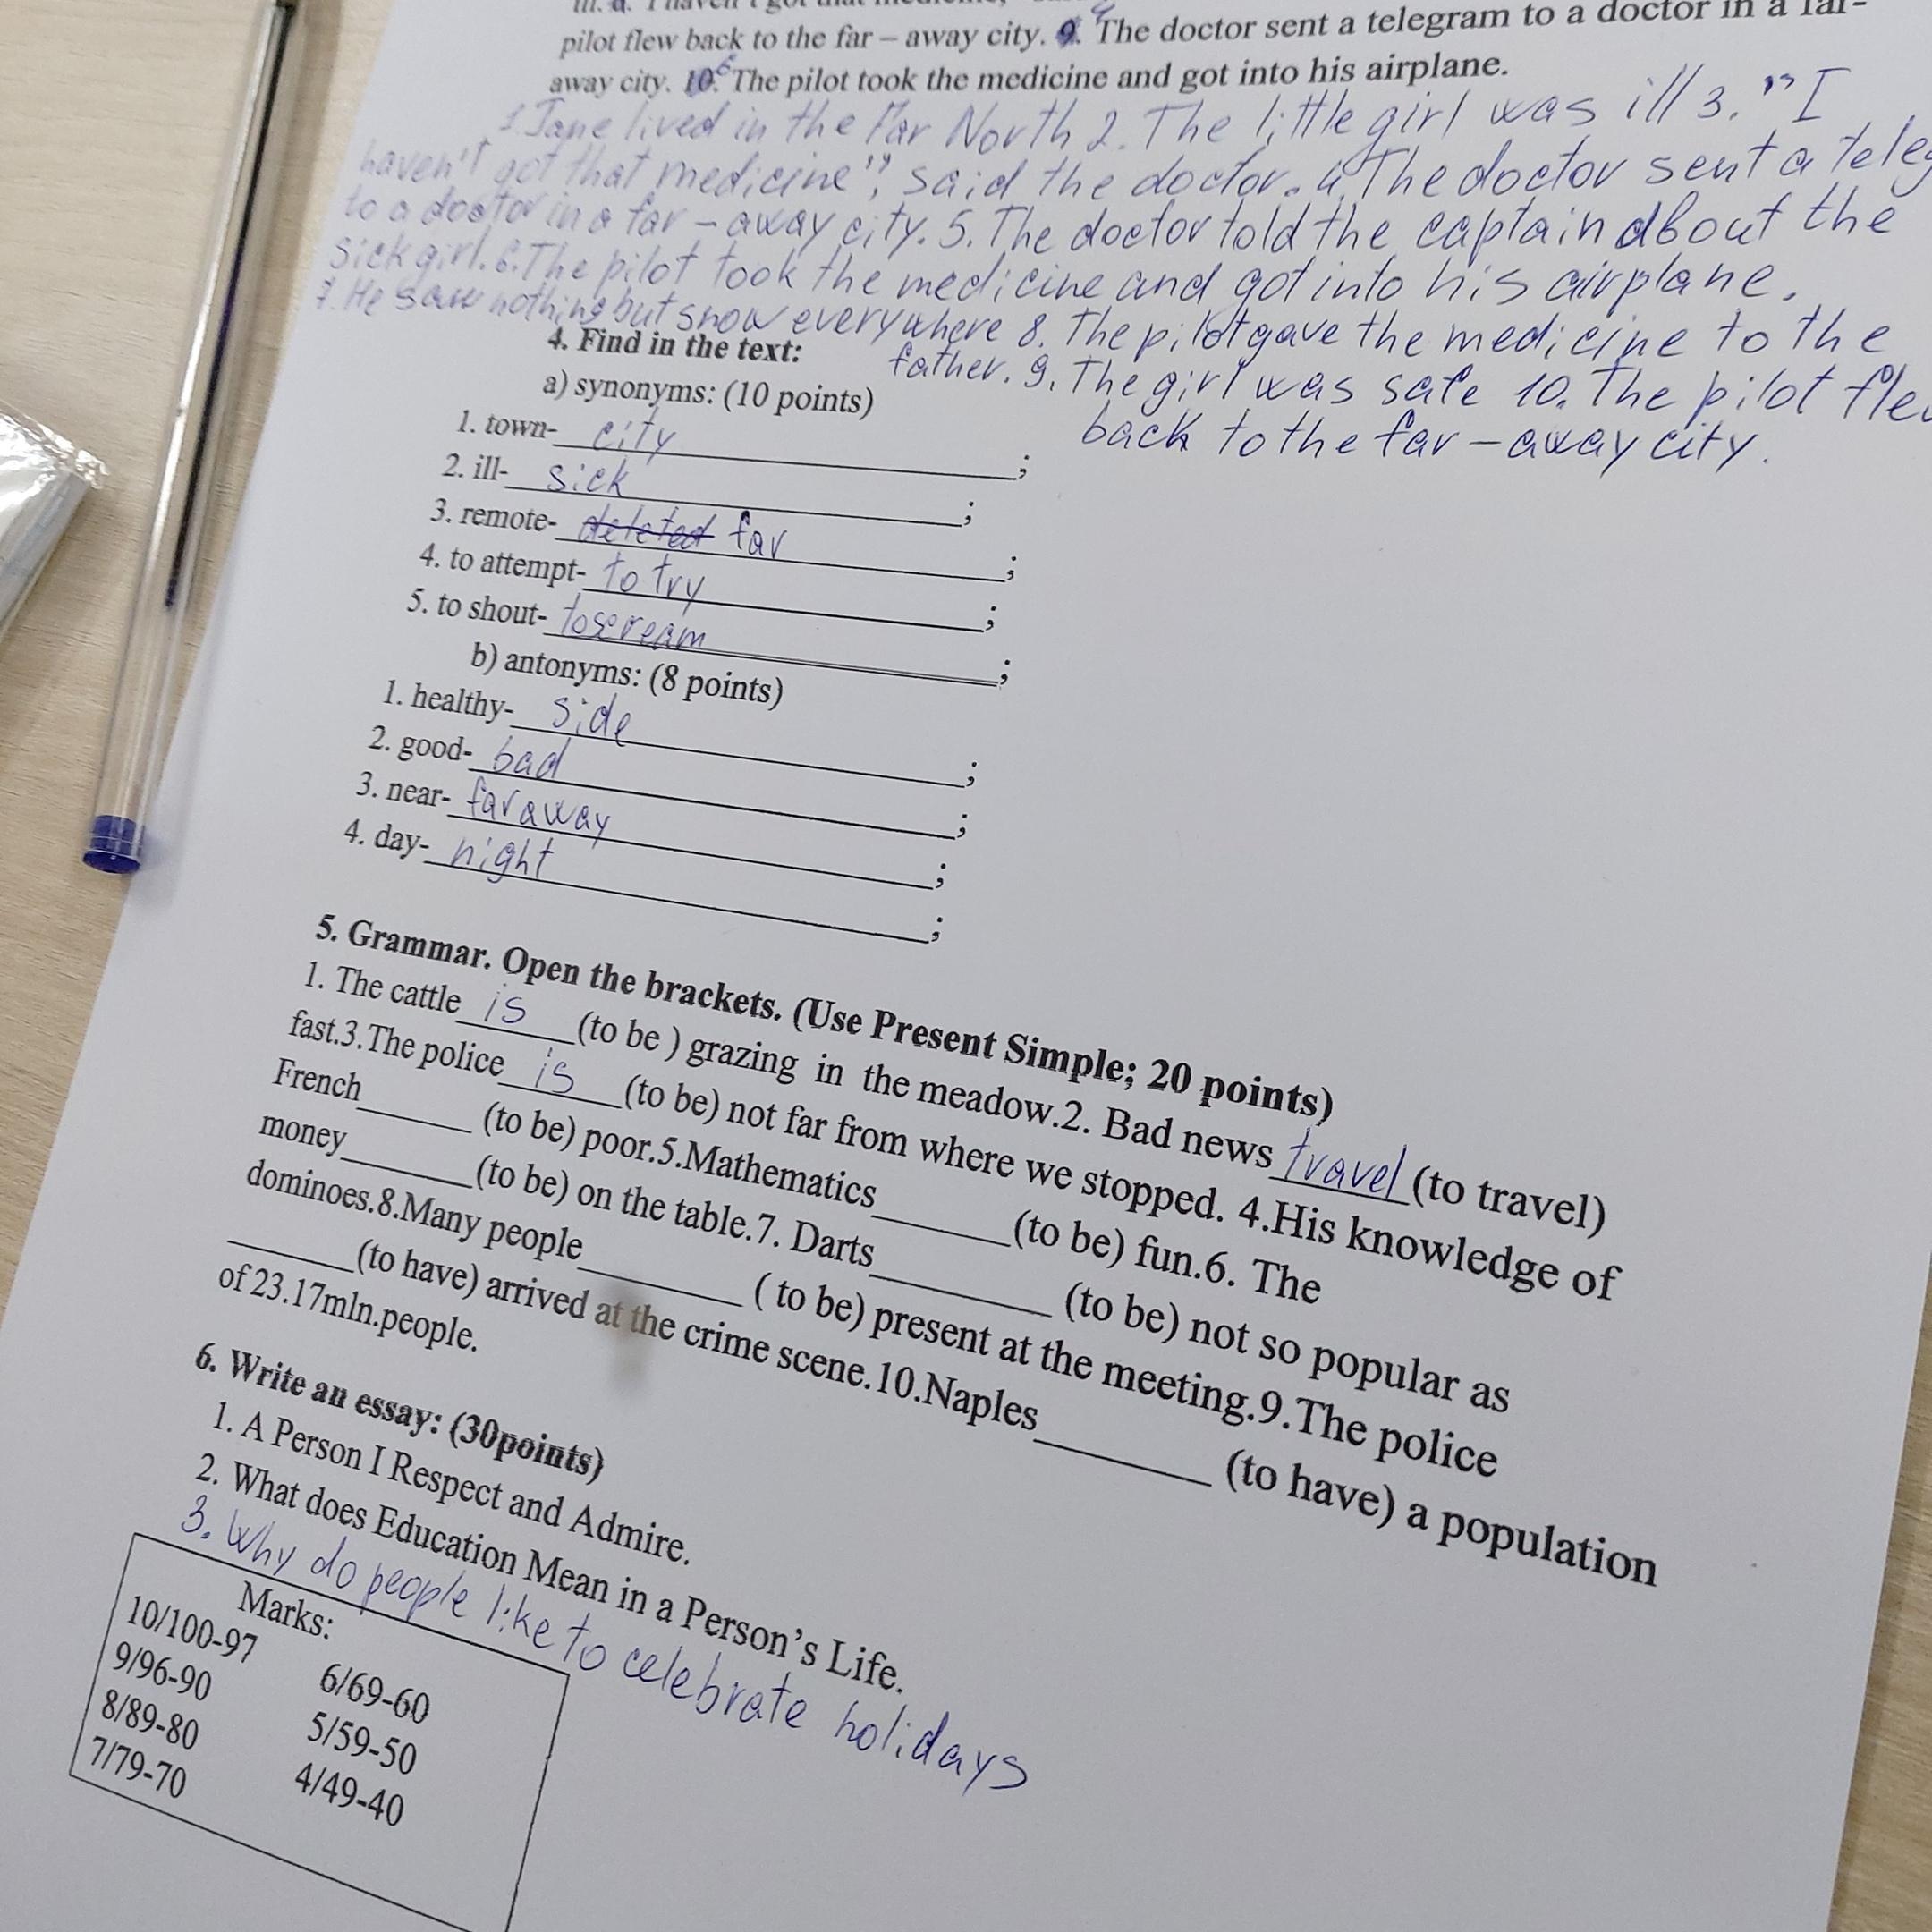 pilot flew back to the far – away city. 9. The doctor sent a telegram to a doctor in a far-
away city. 10. The pilot took the medicine and got into his airplane.
1 Jane lived in the Far North 2. The little girl was ill 3. "I
haven't got that medicine", said the doctor. 4. The doctor sent a teleg
to a doctor in a far – away city. 5. The doctor told the captain about the
sick girl. 6. The pilot took the medicine and got into his airplane.
7. He saw nothing but snow everywhere 8. The pilot gave the medicine to the
father. 9. The girl was safe 10. The pilot flew
back to the far – away city.
4. Find in the text:
a) synonyms: (10 points)
1. town- city ;
2. ill- sick ;
3. remote- deleted far ;
4. to attempt- to try ;
5. to shout- to scream ;
b) antonyms: (8 points)
1. healthy- side ;
2. good- bad ;
3. near- far away ;
4. day- night ;
5. Grammar. Open the brackets. (Use Present Simple; 20 points)
1. The cattle is (to be ) grazing in the meadow.2. Bad news travel (to travel)
fast.3.The police is (to be) not far from where we stopped. 4.His knowledge of
French______ (to be) poor.5.Mathematics______ (to be) fun.6. The
money______ (to be) on the table.7. Darts________ (to be) not so popular as
dominoes.8.Many people________ ( to be) present at the meeting.9.The police
______(to have) arrived at the crime scene.10.Naples________ (to have) a population
of 23.17mln.people.
6. Write an essay: (30points)
1. A Person I Respect and Admire.
2. What does Education Mean in a Person's Life.
3. Why do people like to celebrate holidays
Marks:
10/100-97
9/96-90 6/69-60
8/89-80 5/59-50
7/79-70 4/49-40